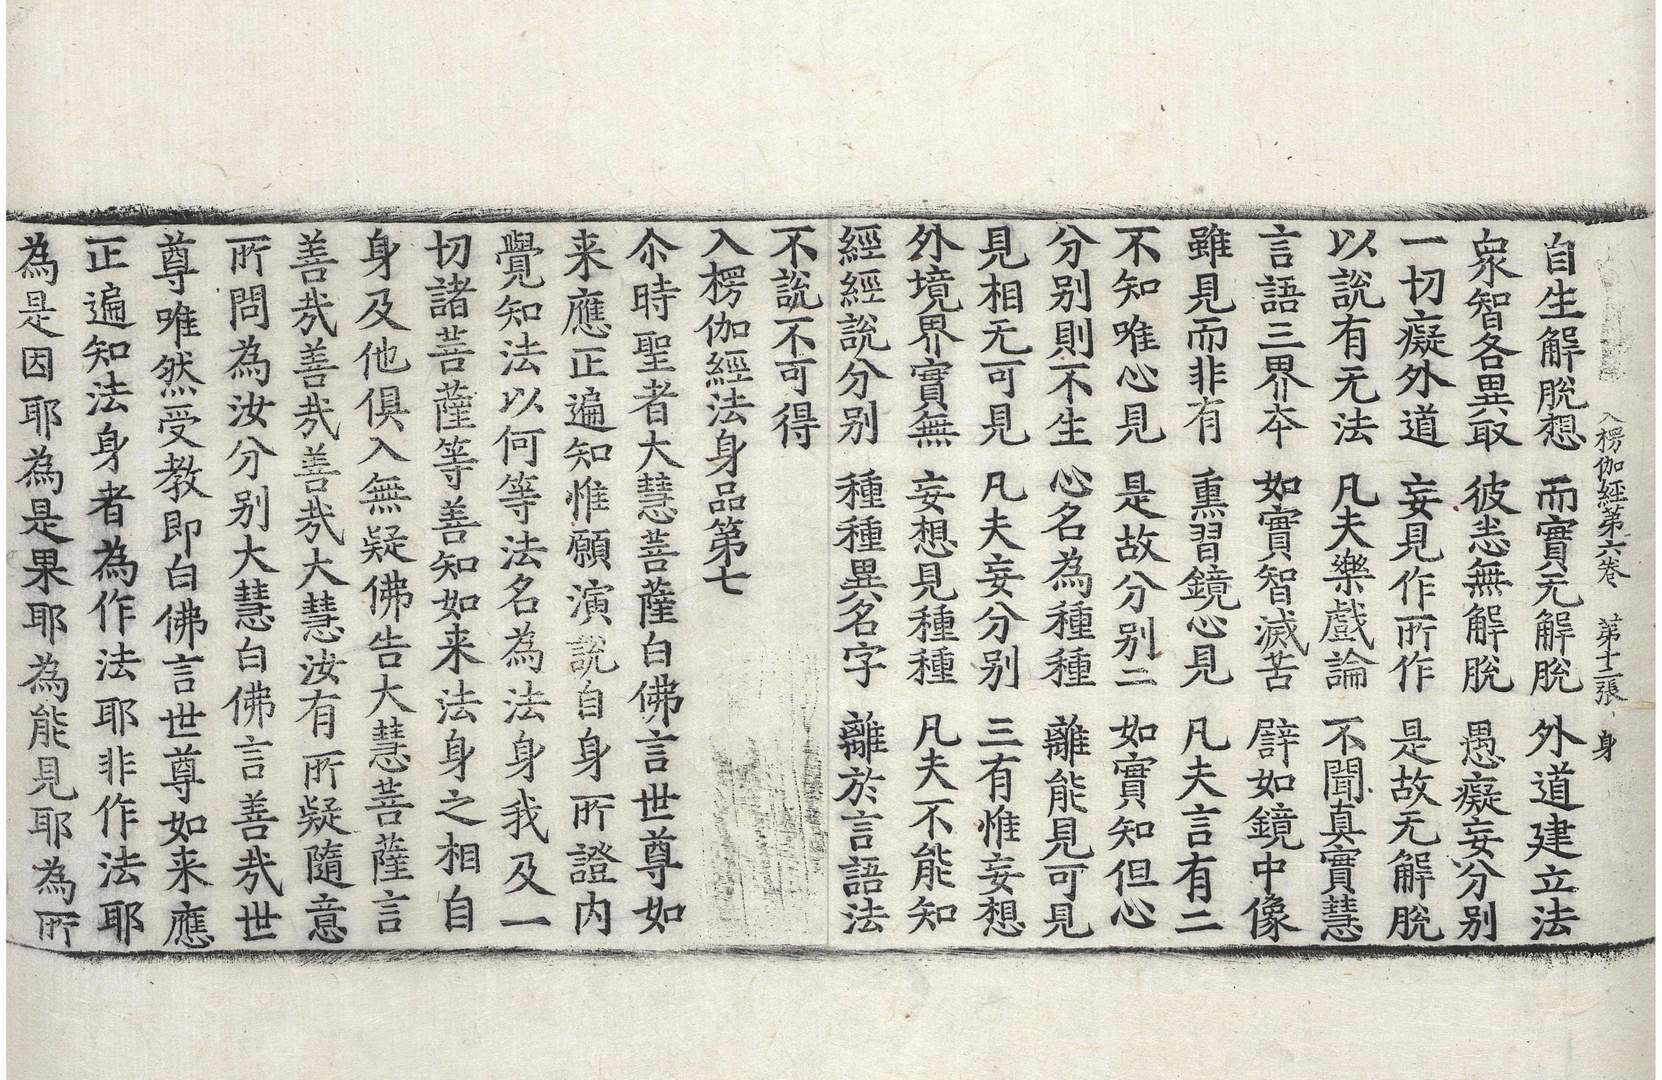 入楞伽經第六卷　第十二張　身
自生解脫想　而實无解脫　外道建立法
衆智各異取　彼悉無解脫　愚癡妄分别
一切癡外道　妄見作所作　是故无解脫
以說有无法　凡夫樂戲論　不聞真實慧
言語三界夲　如實智滅苦　譬如鏡中像
雖見而非有　熏習鏡心見　凡夫言有二
不知唯心見　是故分别二　如實知但心
分别則不生　心名為種種　離能見可見
見相无可見　凡夫妄分别　三有惟妄想
外境界實無　妄想見種種　凡夫不能知
經經說分别　種種異名字　離於言語法
不說不可得
入楞伽經法身品第七
尒時聖者大慧菩薩白佛言世尊如
来應正遍知惟願演說自身所證内
覺知法以何等法名為法身我及一
切諸菩薩等善知如来法身之相自
身及他俱入無疑佛告大慧菩薩言
善㢤善㢤善㢤大慧汝有所疑隨意
所問為汝分别大慧白佛言善㢤世
尊唯然受教即白佛言世尊如来應
正遍知法身者為作法耶非作法耶
為是因耶為是果耶為能見耶為所